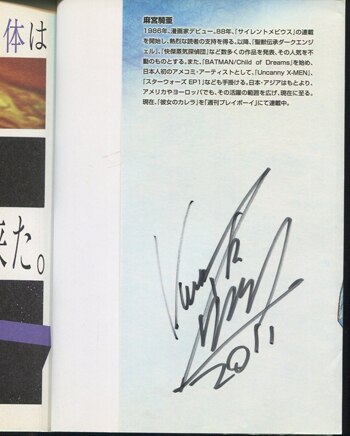 体は
来た。
麻宮騎亜
1986年、漫画家デビュー。88年、「サイレントメビウス」の連載
を開始し、熱烈な読者の支持を得る。以降、「聖獣伝承ダークエンジ
ェル」、「快傑蒸気探偵団」など数多くの作品を発表、その人気を不
動のものとする。また、「BATMAN/Child of Dreams」を始め、
日本人初のアメコミ・アーティストとして、「Uncanny X-MEN」、
「スターウォーズ EP1」なども手掛ける。日本・アジアはもとより、
アメリカやヨーロッパでも、その活躍の範囲を広げ、現在に至る。
現在、「彼女のカレラ」を「週刊プレイボーイ」にて連載中。
2011